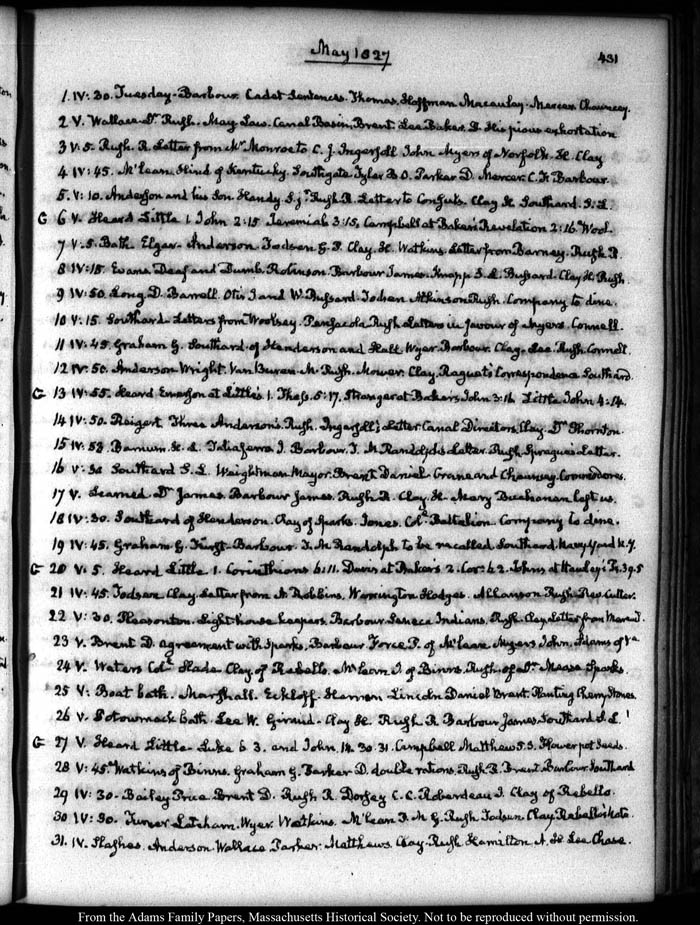 May 1827
431
1. IV: 30. Tuesday. Barbour. Cadet Sentences. Thomas. Hoffman Macaulay. Mercer Chauncey.
2 V. Wallace Dr. Rush. May Law. Canal Basin, Brent. Lee Baker. D. His pious exhortation
3 V. 5. Rush. R. Letter from Mr. Monroe to C. J. Ingersoll John Myers of Norfolk. H. Clay
4 IV: 45. McLean Hind of Kentucky. Southgate Tyler B. O. Parker D. Mercer. C. F. Barbour.
5. V: 10. Anderson and his Son. Handy. S. jr. Rush R. Letter to Clay H. Southard. S. L.
G 6 V. Heard Little 1. John 2:15 Jeremiah 3:15, Campbell at Baker's Revelation 2:16. Wool.
7 V. 5. Bath Elgar. Anderson. Todsen G. P. Clay. H. Watkins. Letter from Barney. Rush R.
8 IV: 15. Evans. Deaf and Dumb. Robinson. Barbour James. Knapp S. L. Bussard. Clay H. Rush.
9 IV: 50. Long. D. Barrell. Otis J and W. Bussard. Todsen Atkinson Rush. Company to dine.
10 V. 15. Southard Letters from Woolsey. Pensacola Rush Letters in favour of Myers. Connell.
11 IV: 45. Graham G. Southard of Henderson and Hall Wyer. Barbour. Clay. Lee. Rush. Connell.
12 IV: 50. Anderson Wright. Van Buren. M. Rush. Mower. Clay. Raguet's Correspondence Southard.
G 13 IV: 55. Heard Emerson at Little's 1. Thess. 5:17. Stranger at Bakers John 3:16. Little John 4:14.
14 IV: 50. Roigert. Three Anderson's. Rush. Ingersoll's Letter Canal Directors. Clay. Dr. Thornton.
15 IV: 53. Barnum. H. L. Taliaferro J. Barbour. T. M. Randolph's Letter. Rush. Sprague's Letter.
16 V: 30 Southard S. L. Weightman Mayor. Brent Daniel Crane and Chauncey Commodores.
17 V. Learned Dr. James. Barbour James. Rush R. Clay H. Mary Buchanan left us.
18 IV: 30. Southard of Henderson. Clay of Sparks. Jones. Coll. Battelion. Company to dine.
19 IV: 45. Graham G. Hurst. Barbour. T. M. Randolph to be recalled Southard. Navy Yard N. Y.
G 20 V: 5. Heard Little 1. Corinthians 6:11. Davis at Bakers 2. Cor: 6 2. Johns at Hawley's Ps. 39. 5
21 IV: 45. Todsen. Clay. Letter from A. Robbins, Warrington Hodges. Allanson Rush. Rev. Cutter.
22 V: 30. Pleasonton. Light-house keepers. Barbour. Seneca Indians. Rush. Clay. Letter from
23 V. Brent D. agreement with Sparks. Barbour Force P. of McLean. Myers John. Adams of Va
24 V. Waters Coll. Slade Clay of Rebello. McLean J. of Binns. Rush of Dr. Mease Sparks.
25 V: Boat bath. Marshall. Eckloff. Harmen. Lincoln Daniel Brent. Planting Cherry Stones.
26 V. Potowmack bath. Lee W. Giraud. Clay H. Rush. R. Barbour James. Southard S. L.
G 27 V. Heard Little. Luke 6 3. and John 14. 30. 31. Campbell Matthew 5. 3. Flower pot seeds.
28 V: 45. Watkins of Binns. Graham G. Parker D. double rations. Rush R. Brent. Barbour Southard
29 IV: 30. Bailey Price Brent D. Rush R. Dorsey C. C. Roberdeau I. Clay of Rebello.
30 IV: 30. Turner Latham. Wyer. Watkins. McLean J. M G. Rush. Todsen Clay. Rebello's Note.
31. IV. Hughes. Anderson. Wallace. Parker. Matthews. Clay. Rush. Hamilton A. H Lee Chase.
From the Adams Family Papers, Massachusetts Historical Society. Not to be reproduced without permission.